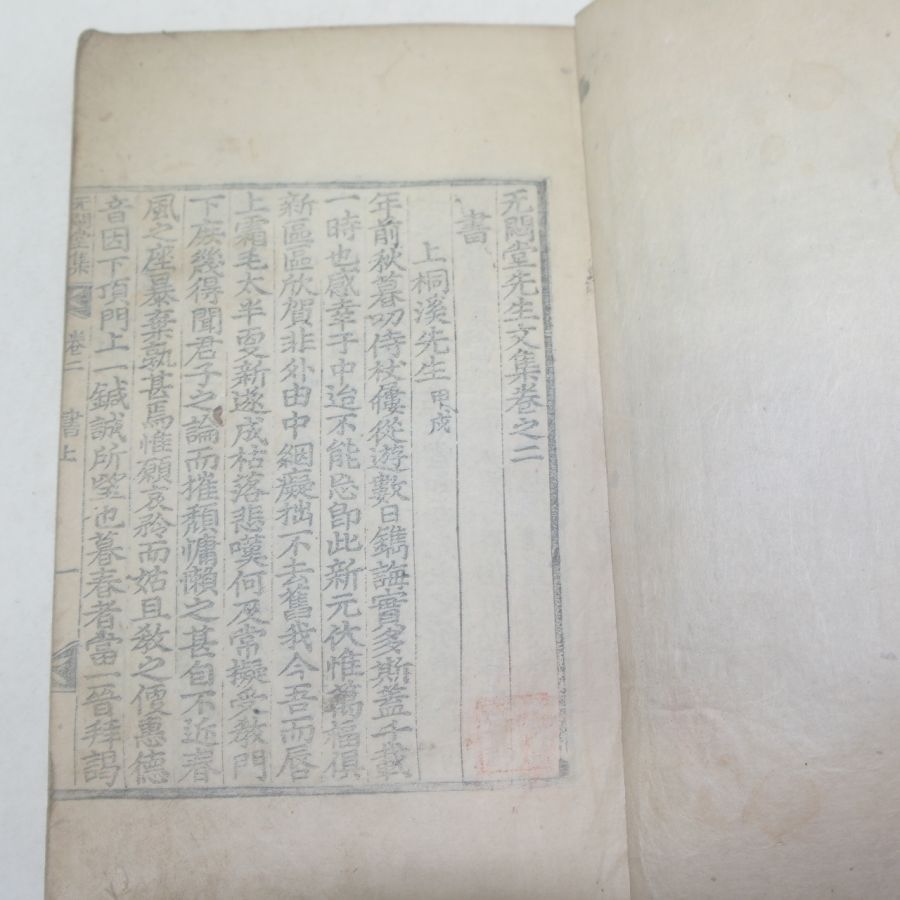 无悶堂先生文集卷之二
書
上桐溪先生 甲戌
年前秋暮叨侍杖屨從遊數日鐫誨實多斯蓋千載
一時也感幸于中迨不能忘卽此新元伏惟萬福俱
新區區欣賀非外由中絪癡拙不去舊我今吾而唇
上霜毛太半更新遂成枯落悲嘆何及常擬受敎門
下庶幾得聞君子之論而摧頹慵懶之甚自不近春
風之座暴棄孰甚焉惟願哀矜而姑且敎之便惠德
音因下頂門上一鍼誠所望也暮春者當一晉拜謁
无悶堂集 卷二 書上 一